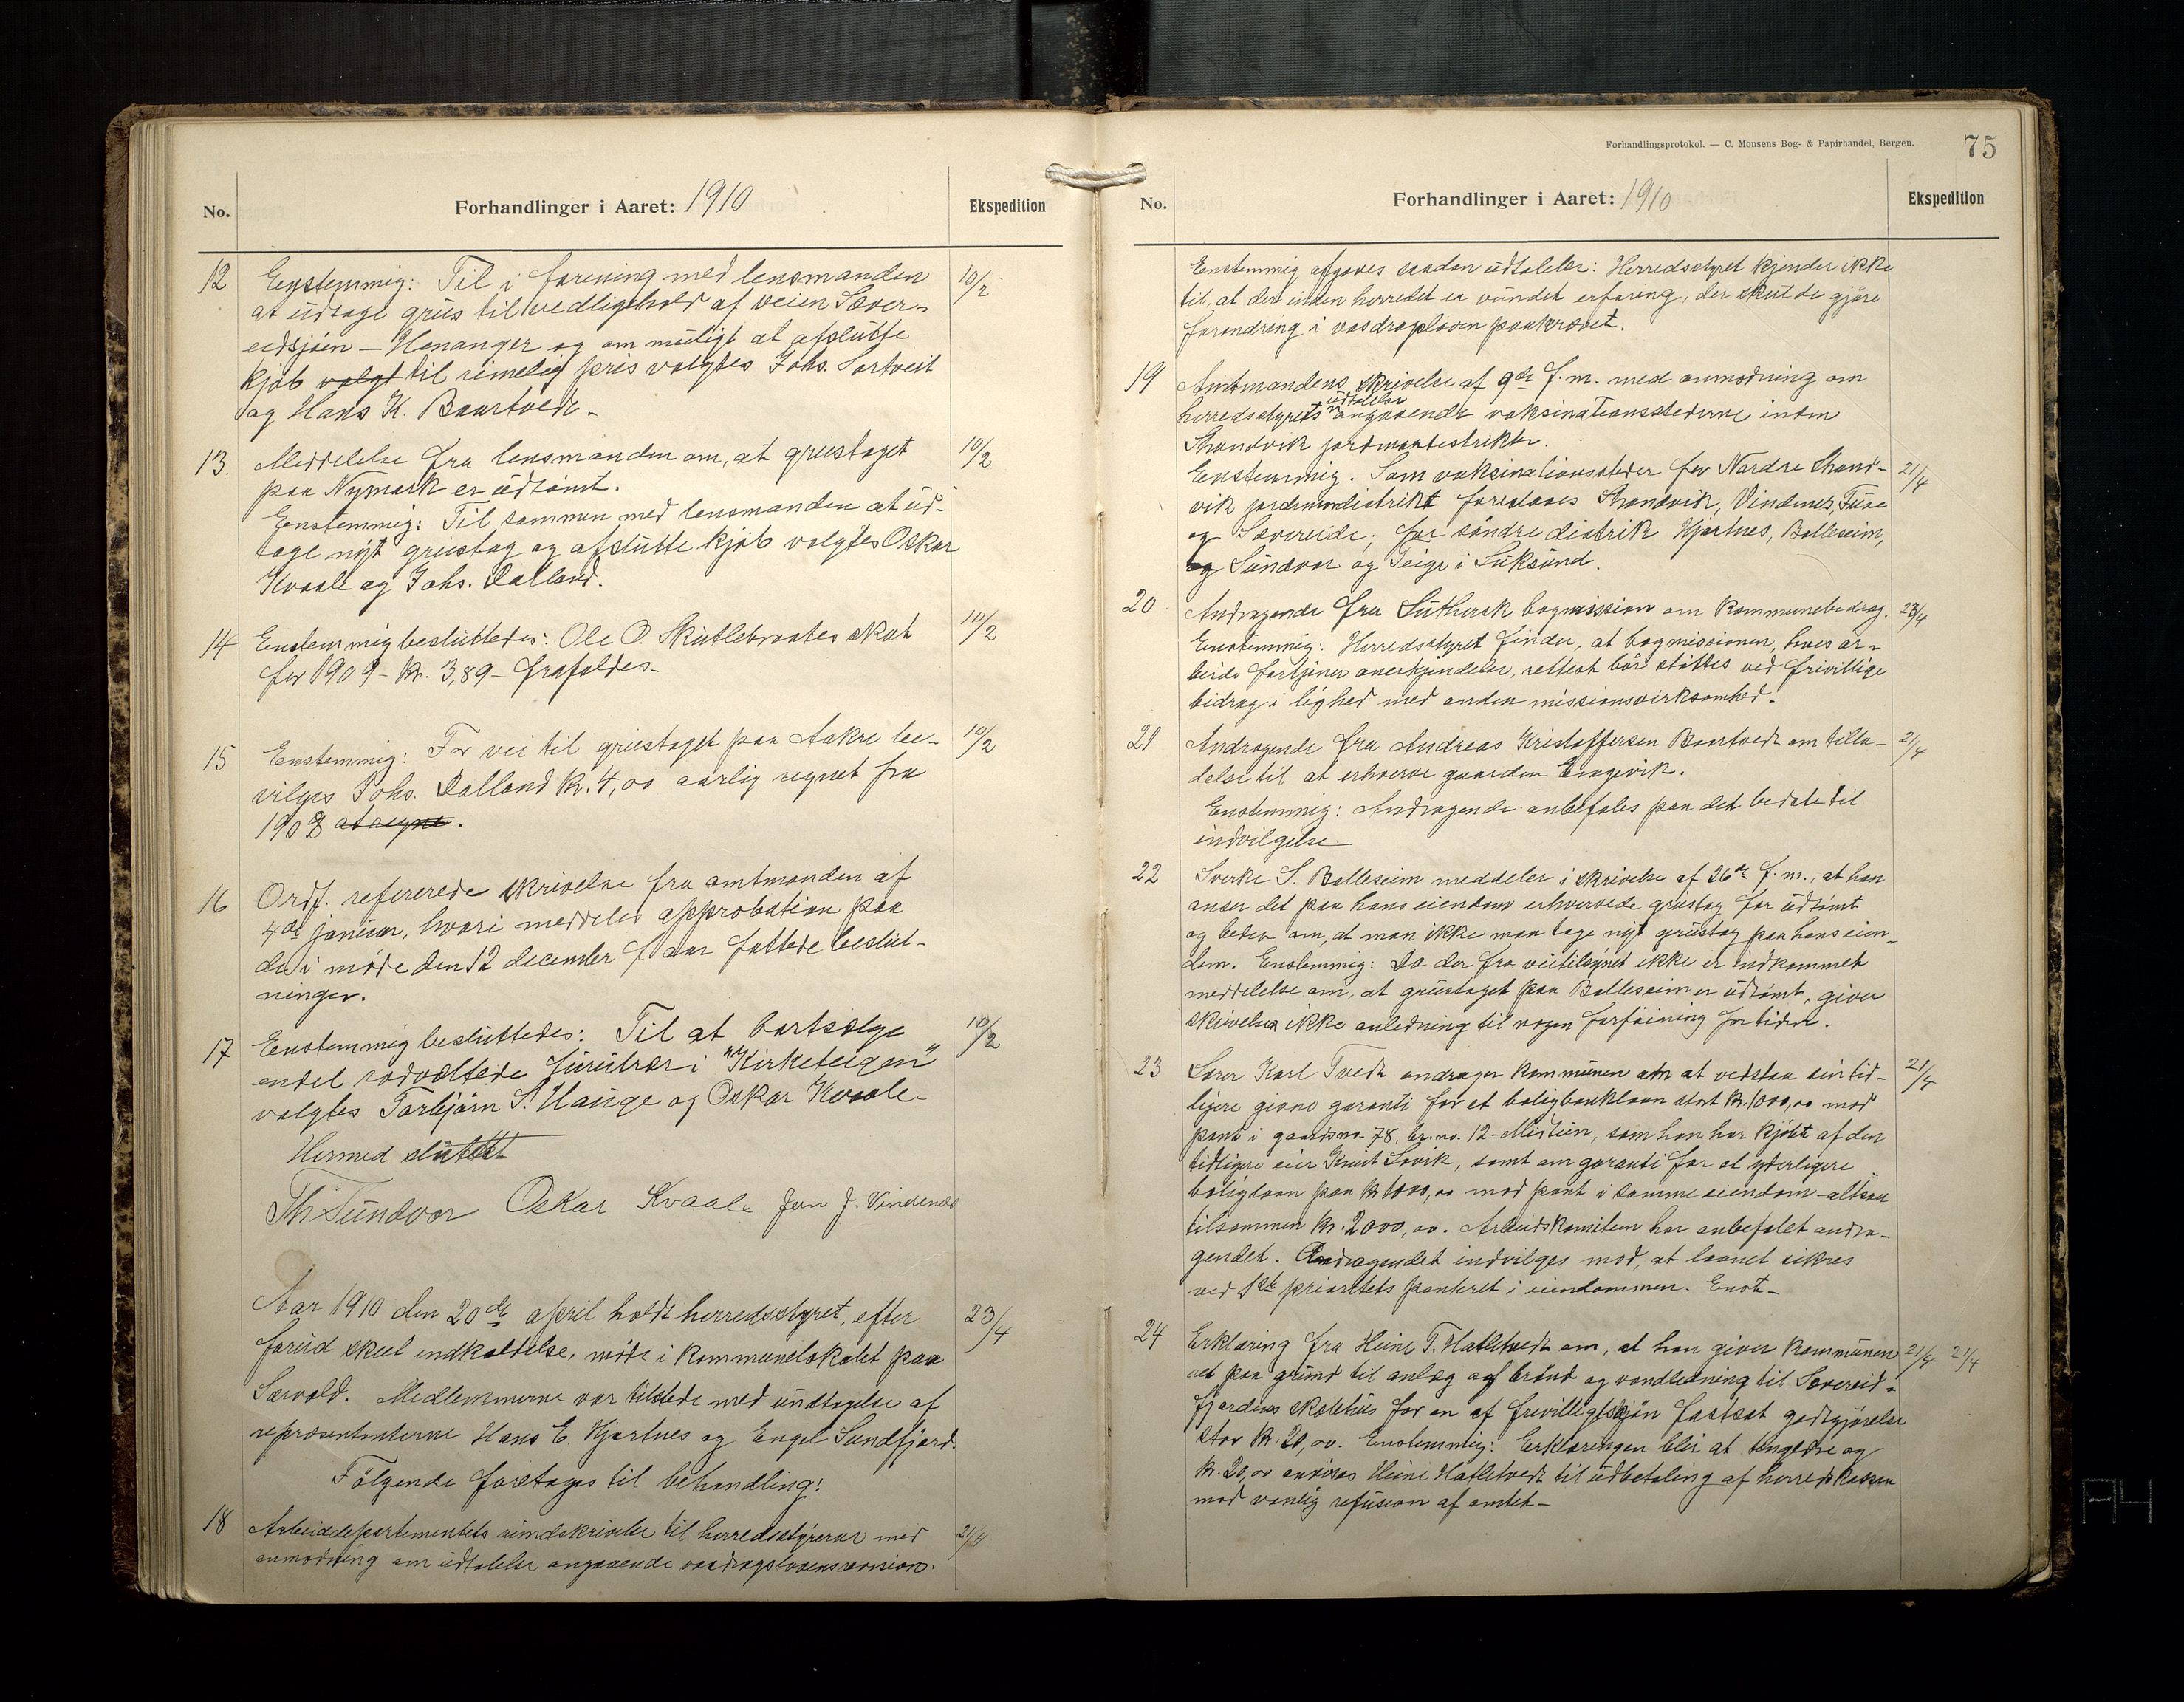 Forhandlinger i Aaret: 1910
No.
Ekspedition
12 Enstemmig: Til i forening med lensmanden 10/2
at udtage grus til vedligehold af veien Sæver-
eidsjøen – Henanger og om muligt at afslutte
kjøb valgt til rimelig pris valgtes Johs. Sørtveit
og Hans K. Baartvedt.
13. Meddelelse fra lensmanden om, at grustaget 10/2
paa Nymark er udtømt.
Enstemmig: Til sammen med lensmanden at ud-
tage nyt grustag og afslutte kjøb valgtes Oskar
Kvaale og Johs. Dalland.
14 Enstemmig besluttedes: Ole O. Skutlebrootes skat 10/2
for 1909 – kr. 3,89 – frafaldes –
15 Enstemmig: For vei til grustaget paa Aakre be- 10/2
vilges Johs. Dalland kr. 4,00 aarlig regnet fra
1908 at regne.
16 Ordf. refererede skrivelse fra amtmanden af
4de januar, hvori meddeles approbation paa
de i møde den 12 december f. aar fattede beslut-
ninger.
17 Enstemmig besluttedes: Til at bortsælge 10/2
endel rodvæltede furutrær i "Kirketeigen"
valgtes Torbjørn S. Hauge og Oskar Kvaale –
Hermed sluttet
Th Sundvor Oskar Kvaale Jon J. Vindenes
Aar 1910 den 20de april holdt herredsstyret, efter 23/4
forud skeet indkaldelse, møde i kommunelokalet paa
Sævold. Medlemmerne var tilstede med undtagelse af
repræsentanterne Hans E. Hjartnes og Engel Sundfjord.
Følgende foretages til behandling:
18 Arbeidsdepartementets rundskrivelse til herredsstyrerne med 21/4
anmodning om udtalelse angaaende vasdragslovens revision.
Forhandlingsprotokol. — C. Monsens Bog- & Papirhandel, Bergen.
75
No.
Forhandlinger i Aaret: 1910
Ekspedition
Enstemmig afgaves saadan udtalelse: Herredsstyret kjender ikke
til, at der inden herredet er vundet erfaring, der skulde gjøre
forandring i vasdragsloven paakrævet.
19 Amtmandens skrivelse af 9de f.m. med anmodning om
herredsstyrets udtalelse angaaende vaksinationsstederne inden
Strandvik jordmordistrikter.
Enstemmig. Som vaksinationssteder for Nordre Strand- 21/4
vik jordmordistrikt foreslaaes Strandvik, Vindenes, Tuse
og Sævereide; for søndre distrik Hjartnes, Bolleseim,
og Sundvor og Teige i Suksund.
20 Andragende fra Luthersk bogmission om kommunebidrag. 23/4
Enstemmig: Herredsstyret finder, at bogmissionen, hvis ar-
beide fortjener anerkjendelse, rettest bør støttes ved frivillige
bidrag i lighed med anden missionsvirksomhed.
21 Andragende fra Andreas Kristoffersen Baartvedt om tilla- 21/4
delse til at erhverve gaarden Engevik.
Enstemmig: Andragende anbefales paa det bedste til
indvilgelse
22 Sverke S. Bolleseim meddeler i skrivelse af 26de f.m., at han
anser det paa hans eiendom erhvervede grustag for udtømt
og beder om, at man ikke maa tage nyt grustag paa hans eien-
dom. Enstemmig: Da der fra veitilsynet ikke er indkommet
meddelelse om, at grustaget paa Bolleseim er udtømt, giver
skrivelsen ikke anledning til nogen forføining for tiden.
23 Lærer Karl Tvedt andrager kommunen om at vedstaa sin tid- 21/4
ligere givne garanti for et boligbanklaan stort kr. 1000,00 mod
pant i gaardsno. 78, br.no. 12 – Mistien, som han har kjøbt af den
tidligere eier Knut Sørvik, samt om garanti for et yderligere
boliglaan paa kr 1000,00 mod pant i samme eiendom – altsaa
tilsammen kr. 2000,00. Arbeidskomiteen har anbefalet andra-
gendet. Andragendet indvilges mod, at laanet sikres
ved 1ste prioritets panteret i eiendommen. Enst –
24 Erklæring fra Heine T. Hatletvedt om, at han giver kommunen 21/4 21/4
ret paa grund til anlæg af brønd og vandledning til Sævereid-
fjordens skolehus for en af frivilligtskjøn fastsat godtgjørelse
stor kr. 20,00. Enstemmig: Erklæringen blir at tinglyse og
kr. 20,00 anvises Heine Hatletvedt til udbetaling af herredskassen
mod vanlig refusion af amtet –